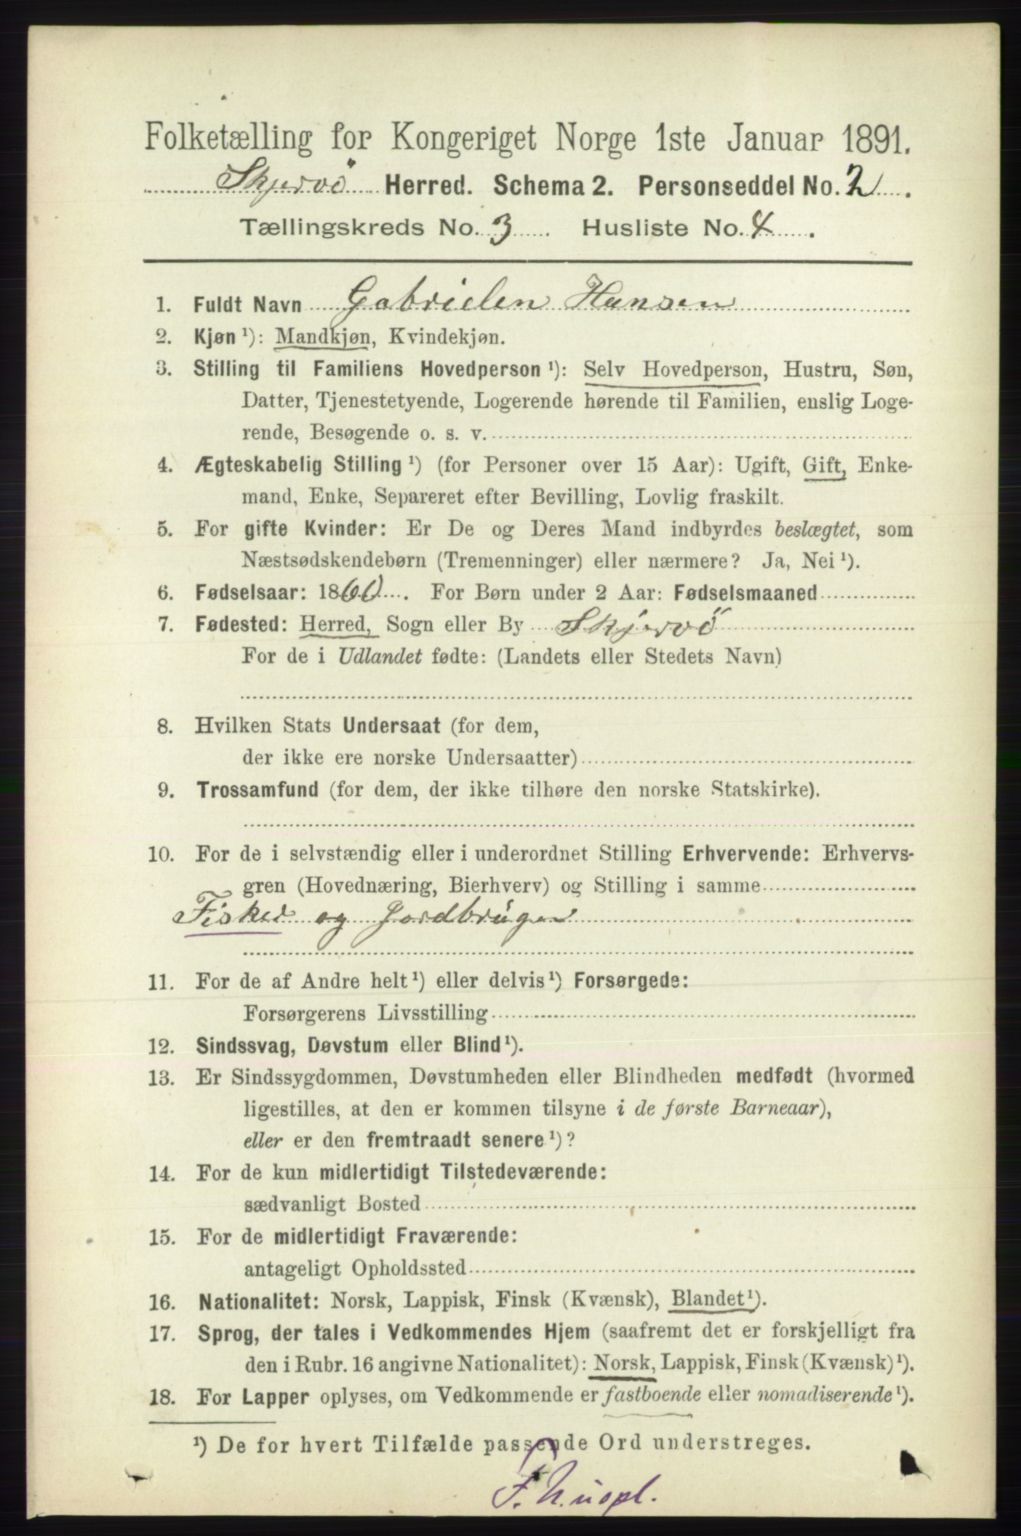 Folketælling for Kongeriget Norge 1ste Januar 1891.
Skjervö Herred. Schema 2. Personseddel No. 2.
Tællingskreds No. 3. Husliste No. 4.
1. Fuldt Navn Gabrielen Hansen
2. Kjøn ¹): Mandkjøn, Kvindekjøn.
3. Stilling til Familiens Hovedperson ¹): Selv Hovedperson, Hustru, Søn,
Datter, Tjenestetyende, Logerende hørende til Familien, enslig Loge-
rende, Besøgende o. s. v.
4. Ægteskabelig Stilling ¹) (for Personer over 15 Aar): Ugift, Gift, Enke-
mand, Enke, Separeret efter Bevilling, Lovlig fraskilt.
5. For gifte Kvinder: Er De og Deres Mand indbyrdes beslægtet, som
Næstsødskendebørn (Tremenninger) eller nærmere? Ja, Nei ¹).
6. Fødselsaar: 1860. For Børn under 2 Aar: Fødselsmaaned
7. Fødested: Herred, Sogn eller By Skjervö
For de i Udlandet fødte: (Landets eller Stedets Navn)
8. Hvilken Stats Undersaat (for dem,
der ikke ere norske Undersaatter)
9. Trossamfund (for dem, der ikke tilhøre den norske Statskirke).
10. For de i selvstændig eller i underordnet Stilling Erhvervende: Erhvervs-
gren (Hovednæring, Bierhverv) og Stilling i samme
Fisker og Jordbruger
11. For de af Andre helt ¹) eller delvis ¹) Forsørgede:
Forsørgerens Livsstilling
12. Sindssvag, Døvstum eller Blind ¹).
13. Er Sindssygdommen, Døvstumheden eller Blindheden medfødt (hvormed
ligestilles, at den er kommen tilsyne i de første Barneaar),
eller er den fremtraadt senere ¹)?
14. For de kun midlertidigt Tilstedeværende:
sædvanligt Bosted
15. For de midlertidigt Fraværende:
antageligt Opholdssted
16. Nationalitet: Norsk, Lappisk, Finsk (Kvænsk), Blandet ¹).
17. Sprog, der tales i Vedkommendes Hjem (saafremt det er forskjelligt fra
den i Rubr. 16 angivne Nationalitet): Norsk, Lappisk, Finsk (Kvænsk) ¹).
18. For Lapper oplyses, om Vedkommende er fastboende eller nomadiserende ¹).
¹) De for hvert Tilfælde passende Ord understreges.